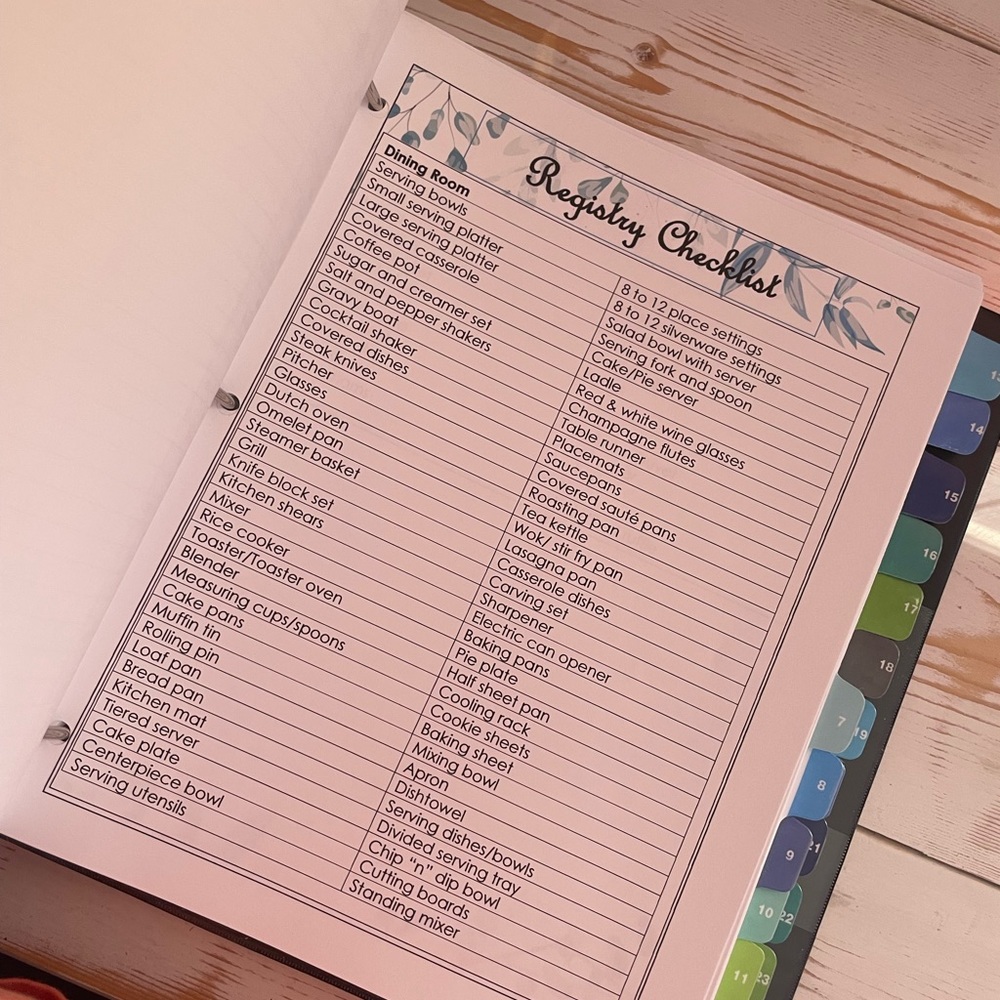 Registry Checklist
Dining Room
Serving bowls
Small serving platter
Large serving platter
Covered casserole
Coffee pot
Sugar and creamer set
Salt and pepper shakers
Gravy boat
Cocktail shaker
Covered dishes
Steak knives
Pitcher
Glasses
Dutch oven
Omelet pan
Steamer basket
Grill
Knife block set
Kitchen shears
Mixer
Rice cooker
Toaster/Toaster oven
Blender
Measuring cups/spoons
Cake pans
Muffin tin
Rolling pin
Loaf pan
Bread pan
Kitchen mat
Tiered server
Cake plate
Centerpiece bowl
Serving utensils
8 to 12 place settings
8 to 12 silverware settings
Salad bowl with server
Serving fork and spoon
Cake/Pie server
Ladle
Red & white wine glasses
Champagne flutes
Table runner
Placemats
Saucepans
Covered sauté pans
Roasting pan
Tea kettle
Wok/ stir fry pan
Lasagna pan
Casserole dishes
Carving set
Sharpener
Electric can opener
Baking pans
Pie plate
Half sheet pan
Cooling rack
Cookie sheets
Baking sheet
Mixing bowl
Apron
Dishtowel
Serving dishes/bowls
Divided serving tray
Chip “n” dip bowl
Cutting boards
Standing mixer
14
15
16
17
18
7
19
8
9
21
10
22
11
23